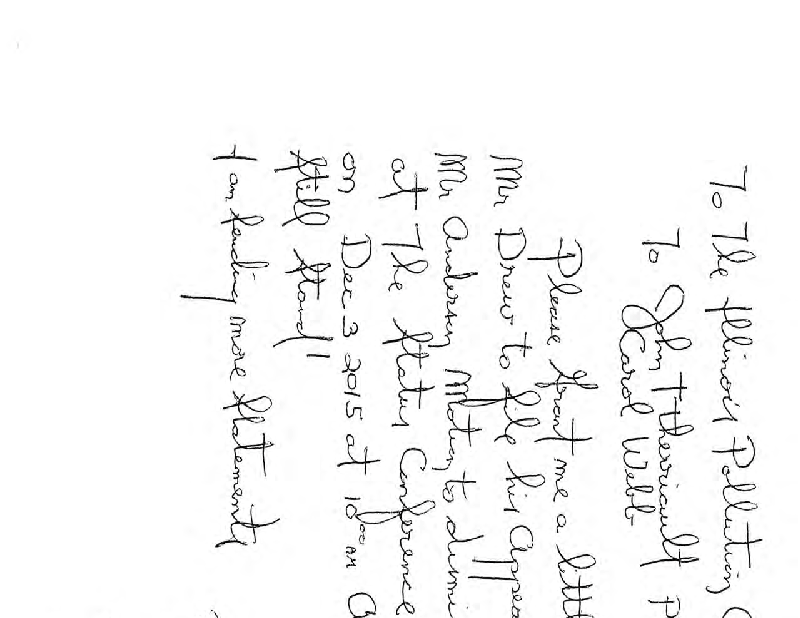 To The Illinois Pollution C
To John Therriault P
Carol Webb
Please Grant me a littl
Mr Drew to file his Appea
Mr Anderson Motion to dismi
at The Status Conference
on Dec 3 2015 at 10:00 AM
still stand!
I am sending more statements